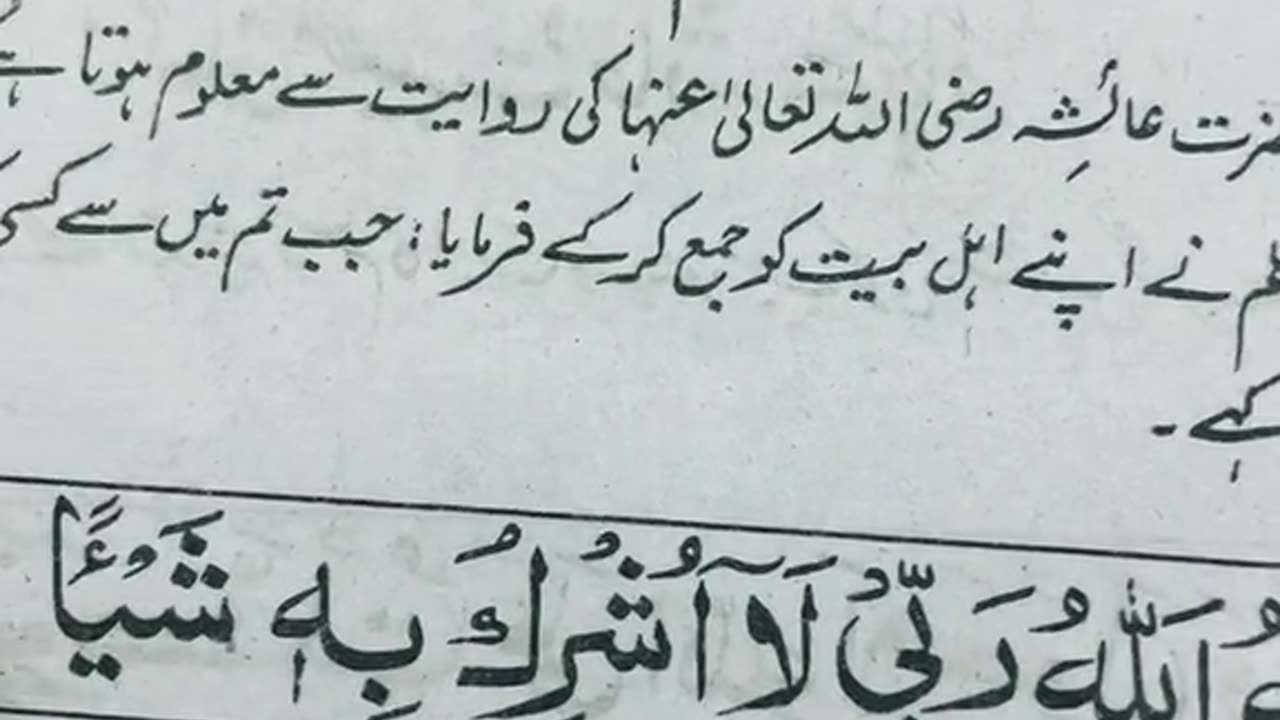 حضرت عائشہ رضی اللہ تعالیٰ عنہا کی روایت سے معلوم ہوتا ہے
نے اپنے اہل بیت کو جمع کرکے فرمایا: جب تم میں سے کسی
کہے۔
اَللّٰهُ رَبِّیْ لَآ اُشْرِكُ بِهٖ شَیْئًا